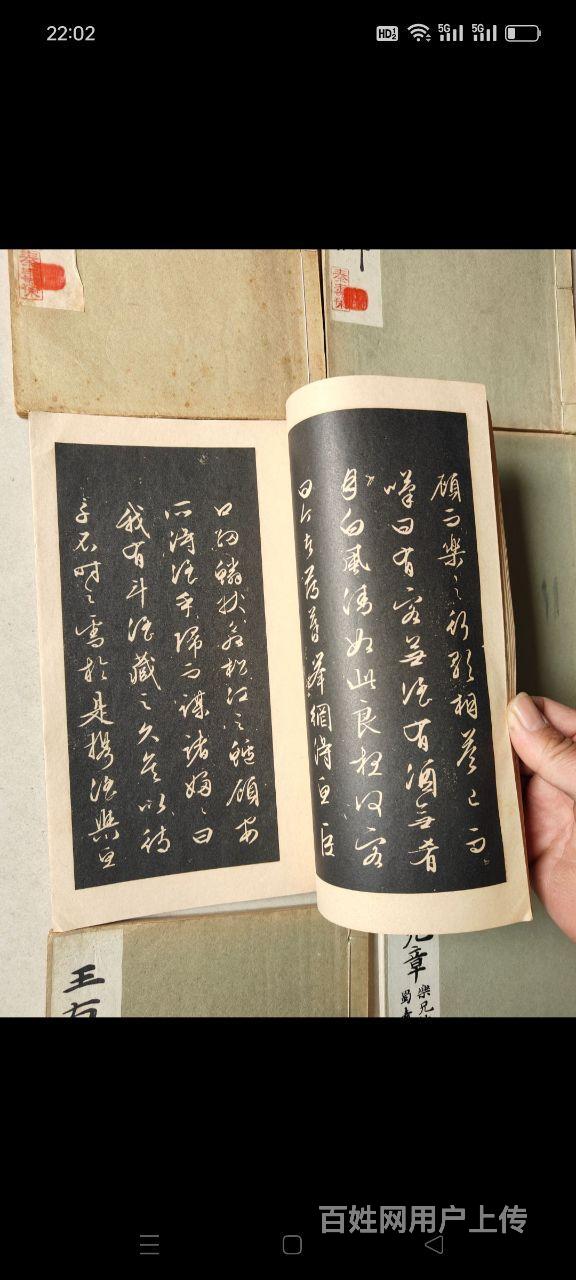 22:02
HD 1 2
5G 5G
顧而樂之行歌相答已而
嘆曰有客無酒有酒無肴
月白風清如此良夜何客
曰今者薄暮舉網得魚巨
口細鱗狀如松江之鱸顧安
所得酒乎歸而謀諸婦〻曰
我有斗酒藏之久矣以待
子不時之需於是攜酒與魚
王右
章
樂兄
蜀素
百姓网用户上传